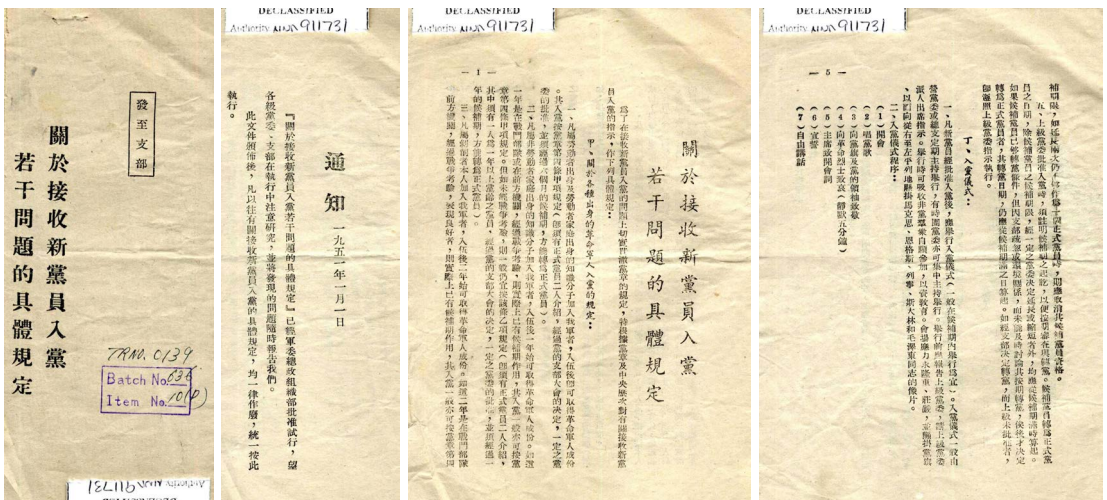 發至支部
關於接收新黨員入黨
若干問題的具體規定
TRNO. 0139
Batch No. 636
Item No.
DECLASSIFIED
Authority NND 911731
通知 一九五一年一月一日
『關於接收新黨員入黨若干問題的具體規定』已經軍委總政組織部批准試行,望
各級黨委、支部在執行中注意研究,並將發現的問題隨時報告我們。
此文件頒佈後,凡以往有關接收新黨員入黨的具體規定,均一律作廢,統一按此
執行。
DECLASSIFIED
Authority NND 911731
— 1 —
關於接收新黨員入黨
若干問題的具體規定
為了在接收新黨員入黨的問題上切實貫徹黨章的規定,特根據黨章及中央歷次對有關接收新黨
員入黨的指示,作下列具體規定:
甲、關於各種出身的革命軍人入黨的規定:
一、凡屬勞動者出身及勞動者家庭出身的知識分子加入我軍者,入伍後即可取得革命軍人成份
其入黨按黨章第四條甲項規定(即須有正式黨員二人介紹,經過黨的支部大會的決定,一定之黨
委的批准,並須經過六個月的候補期,方能轉為正式黨員)。
二、凡屬非勞動者家庭出身的知識分子加入我軍者,入伍後一年始可取得革命軍人成份。如這
一年是在戰鬥部隊或在前方機關,經過戰爭考驗,則實際上已有候補期作用,其入黨一般亦可按黨
章第四條甲項規定。但如未經戰爭考驗,則一般仍宜按該條乙項規定(即須有正式黨員二人介紹,
其中須有一人為一年以上黨齡之黨員,經過黨的支部大會的決定,一定之黨委的批准,並須經過一
年的候補期,方能轉為正式黨員)。
三、凡屬剝削者本人加入我軍者,入伍後二年始可取得革命軍人成份。如這二年是在戰鬥部隊
前方機關,經過戰爭考驗,表現良好者,則實際上已有候補期作用,其入黨一般亦可按黨章第四
DECLASSIFIED
Authority NND 911731
— 5 —
補期限,如延長兩次仍
正式黨員時,則應取消其候補黨員資格。
五、上級黨委批准入黨時,須註明候補期之起訖,以便按期審查與轉黨。候補黨員轉為正式黨
員之日期,除候補黨員之候補期限,經一定之黨委決定延長或縮短者外,均應從候補期滿時算起。
如果候補黨員已够轉黨條件,但因支部疏忽或環境關係,而未能及時討論其按期轉黨,後後才決定
轉為正式黨員者,其轉黨日期,仍應從候補期滿之日算起。如經支部決定轉黨,而上級未批准者,
即遵照上級黨委指示執行。
丁、入黨儀式:
一、凡新黨員經批准入黨後,應舉行入黨儀式(一般在候補期內舉行為宜)。入黨儀式一般由
營黨委或總支定期主持舉行,有時團黨委亦可集中主持舉行。舉行前應報告上級黨委,請上級黨委
派人出席指示。舉行時可吸收非黨羣眾自願參加,以資教育。會場應力求隆重、莊嚴,並懸掛黨旗
、以面向從右至左平列地懸掛馬克思、恩格斯、列寧、斯大林和毛澤東同志的像片。
二、入黨儀式程序:
(1)開會
(2)唱黨歌
(3)向黨旗及黨的領袖致敬
(4)向革命烈士致哀(靜默五分鐘)
(5)主席致開會詞
(6)宣誓
(7)自由講話